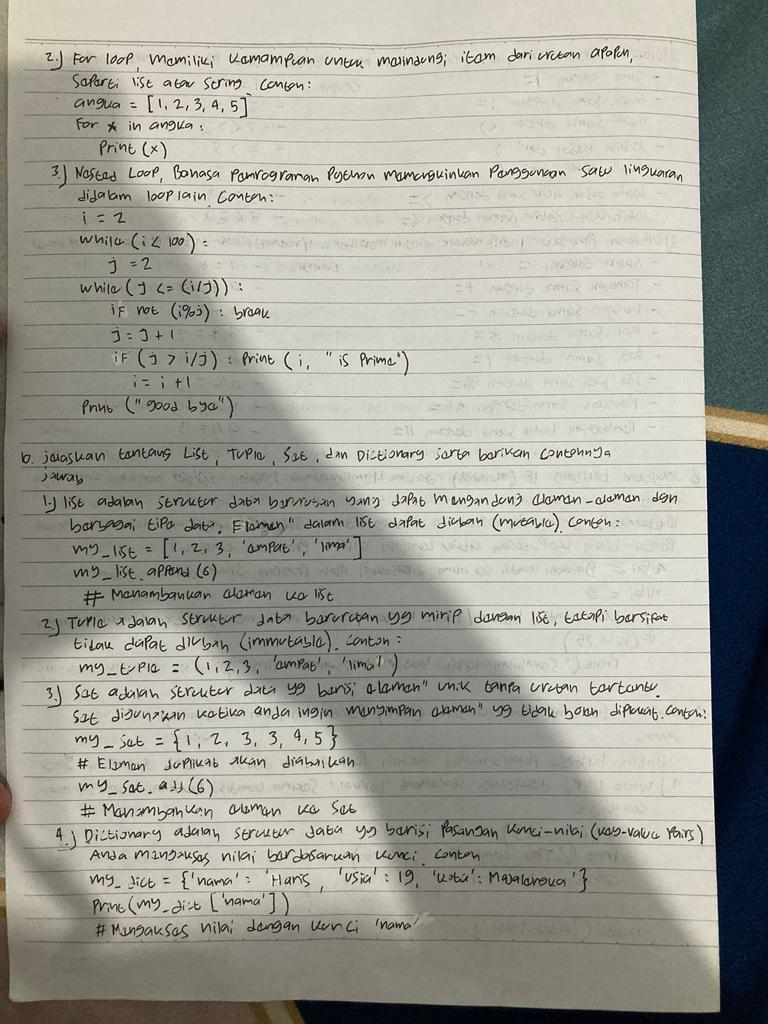 2.) For loop, memiliki kemampuan untuk meindungi item dari urutan apapun,
Seperti list atau string contoh:
angka = [1, 2, 3, 4, 5]
For * in angka:
Print (x)
3.) Nested Loop, Bahasa Pemrograman Python memungkinkan Penggunaan Satu lingkaran
didalam loop lain. Contoh:
i = 2
while (i < 100):
j = 2
while (j <= (i/j)):
if not (i%j): break
j = j + 1
if (j > i/j): Print (i, " is Prime")
i = i + 1
Print ("good bye")
b. jelaskan tentang List, Tuple, Set, dan Dictionary serta berikan contohnya
jawab
1.) list adalah struktur data berurusan yang dapat mengandung elemen-elemen dgn
berbagai tipe data. Elemen" dalam list dapat diubah (mutable). contoh:
my_list = [1, 2, 3, 'empat', 'lima']
my_list.append (6)
# Menambahkan elemen ke list
2.) Tuple adalah struktur data berurutan yg mirip dengan list, tetapi bersifat
tidak dapat diubah (immutable). contoh:
my_tuple = (1, 2, 3, 'empat', 'lima')
3.) Set adalah struktur data yg berisi elemen" unik tanpa urutan tertentu.
Set digunakan ketika anda ingin menyimpan elemen" yg tidak boleh diplikat. contoh:
my_set = {1, 2, 3, 3, 4, 5}
# Elemen duplikat akan diabaikan
my_set.add (6)
# Menambahkan elemen ke Set
4.) Dictionary adalah struktur data yg berisi Pasangan kunci-nilai (key-value Pairs)
Anda mengakses nilai berdasarkan kunci. contoh
my_dict = {'nama': 'Haris, 'usia': 19, 'kota': Majalengka'}
Print (my_dict ['nama'])
# Mengakses nilai dengan kunci 'nama'